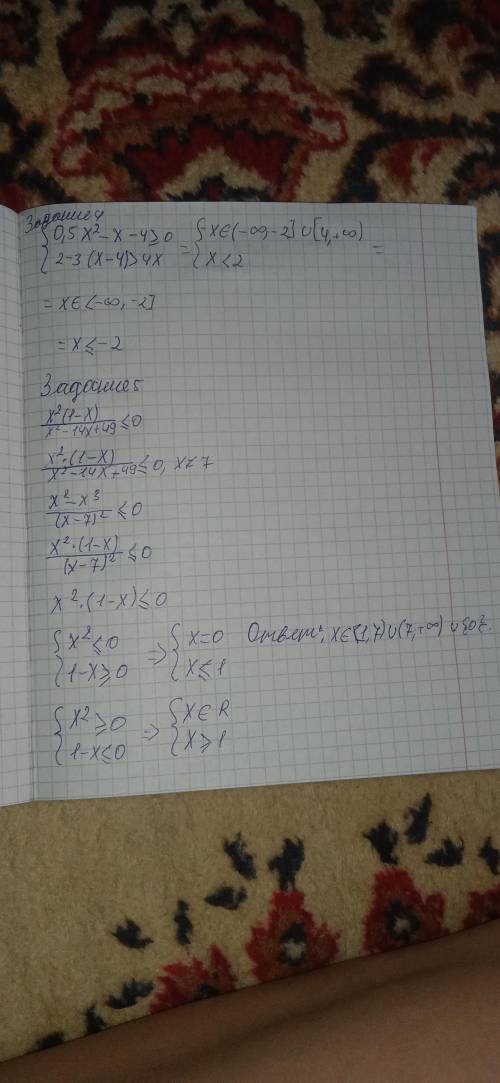 Задание 4
{0,5x²-x-4≥0 = {x∈(-∞,-2]∪[4,+∞) =
{2-3(x-4)>4x {x<2
= x∈(-∞,-2]
= x≤-2
Задание 5
x²(1-x)/x²-14x+49≤0
x²·(1-x)/x²-14x+49≤0, x≠7
x²-x³/(x-7)²≤0
x²·(1-x)/(x-7)²≤0
x²·(1-x)≤0
{x²≤0 => {x=0 Ответ: x∈[1,7)∪(7,+∞)∪{0}.
{1-x≥0 {x≤1
{x²≥0 => {x∈R
{1-x≤0 {x≥1